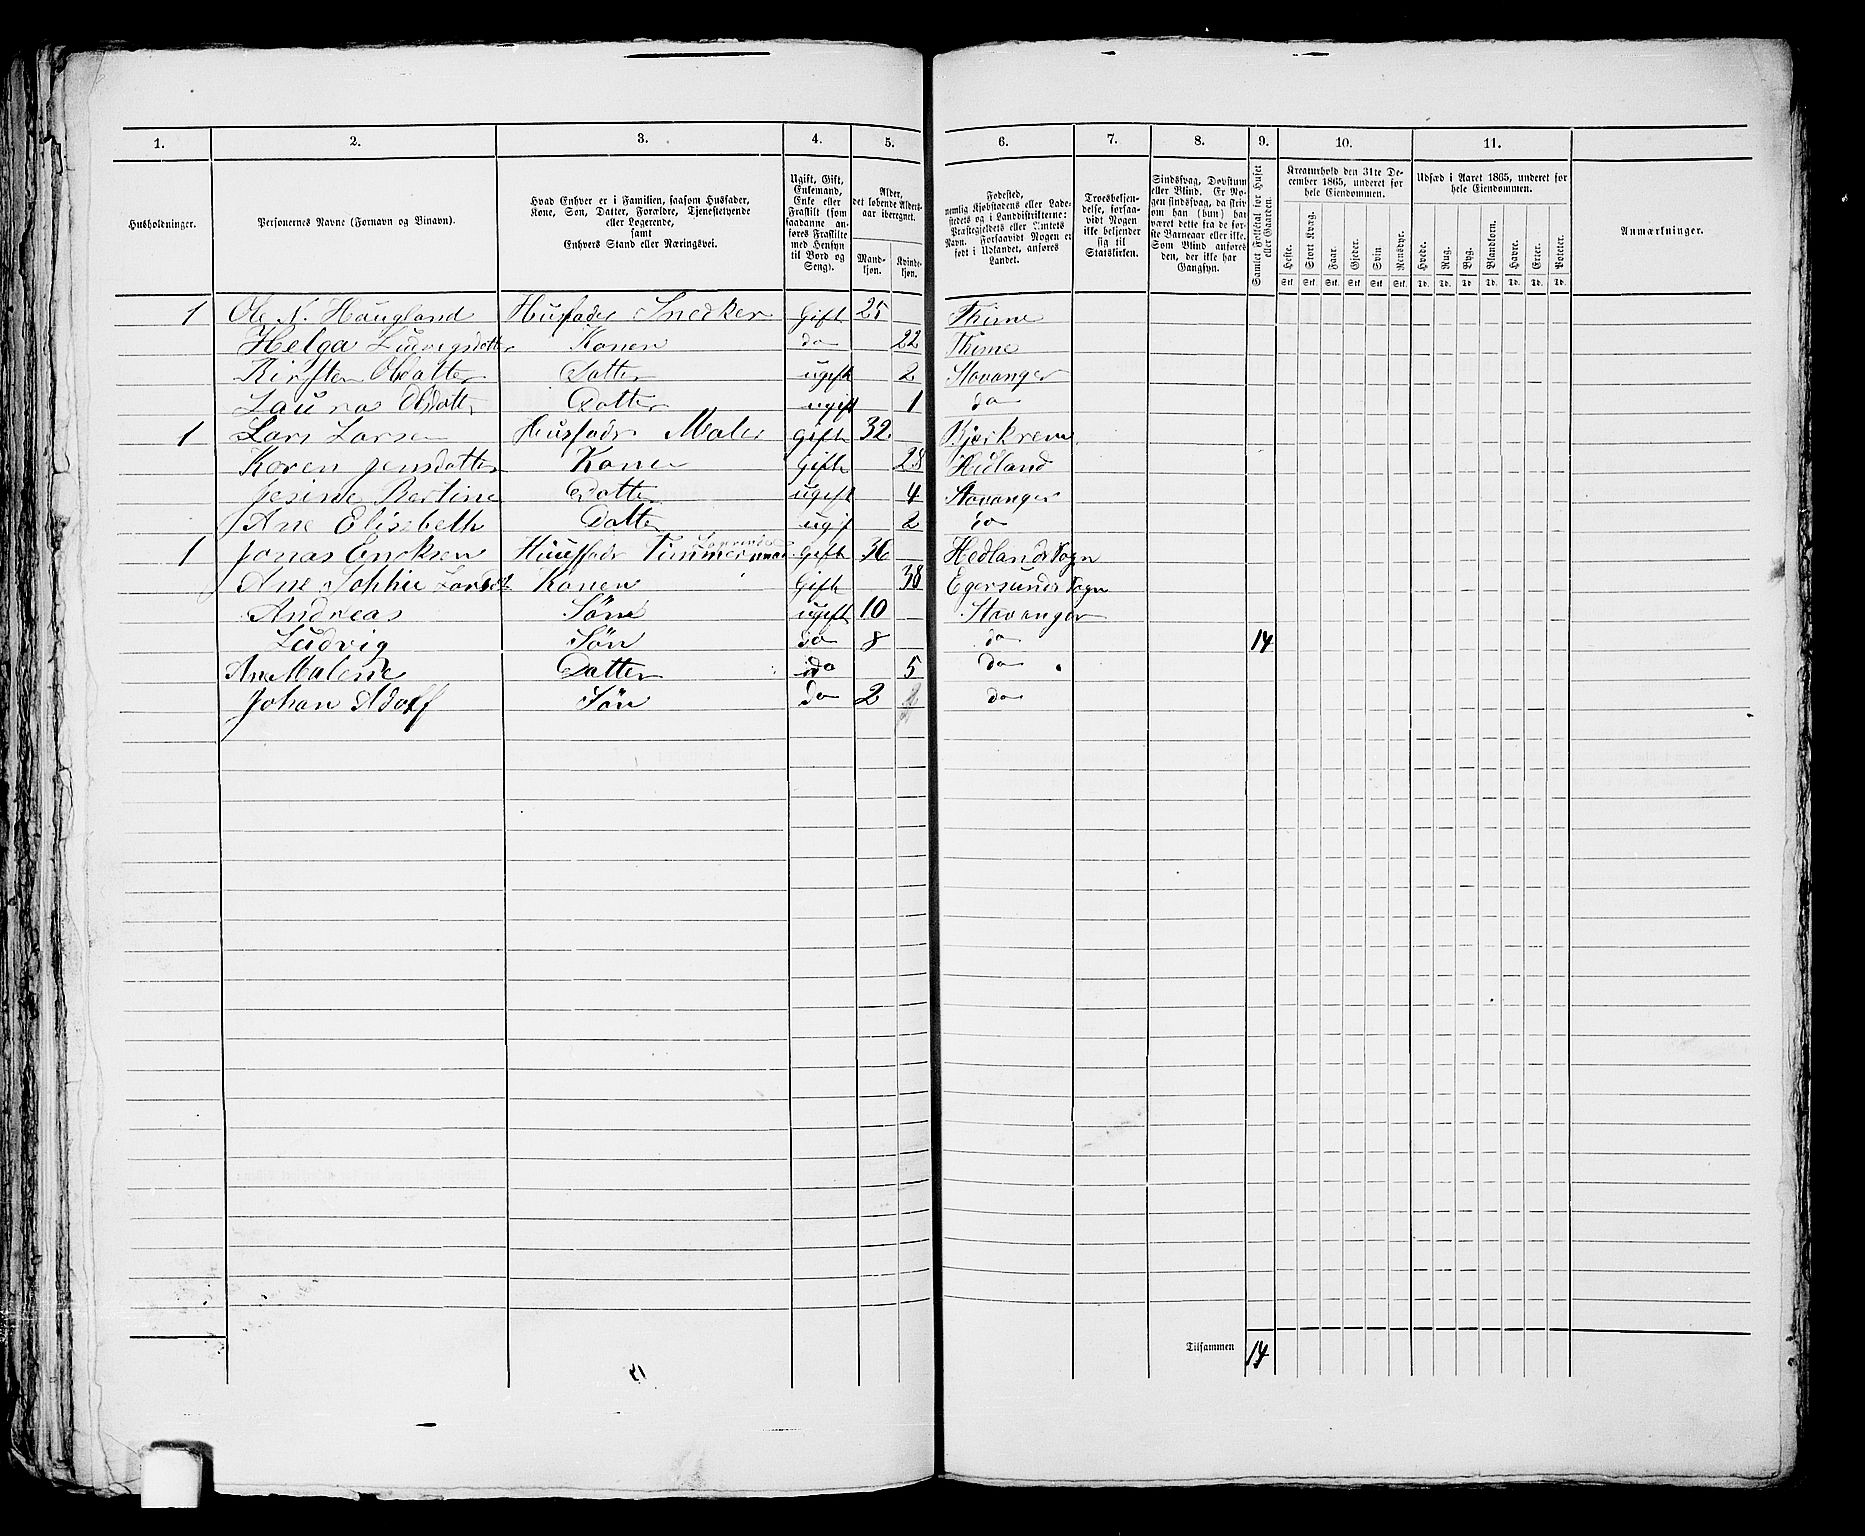 1. 2. 3. 4. 5. 6. 7. 8. 9. 10. 11.
Husholdninger.
Personernes Navne (Fornavn og Binavn).
Hvad Enhver er i Familien, saasom Husfader, Kone, Søn, Datter, Forældre, Tjenestetyende eller Logerende, samt Enhvers Stand eller Næringsvei.
Ugift, Gift, Enkemand, Enke eller Fraskilt (som saadanne anføres Fraskilte med Hensyn til Bord og Seng).
Alder, det løbende Aldersaar iberegnet.
Mandkjøn. Kvindekjøn.
Fødested, nemlig Kjøbstadens eller Ladestedets og i Landdistrikterne: Præstegjeldets eller Amtets Navn. Forsaavidt Nogen er født i Udlandet, anføres Landet.
Troesbekjendelse, forsaavidt Nogen ikke bekjender sig til Statskirken.
Sindssvag, Døvstum eller Blind. Er Nogen sindssvag, da skriv om han (hun) har været dette fra de første Barneaar eller ikke. Som Blind anføres den, der ikke har Gangsyn.
Samlet Folketal for Huset eller Gaarden.
Kreaturhold den 31te December 1865, underet for hele Eiendommen.
Heste. Stort Kvæg. Faar. Gjeder. Svin Rensdyr.
Stk. Stk. Stk. Stk. Stk. Stk.
Udsæd i Aaret 1865, underet for hele Eiendommen.
Hvede. Rug. Byg. Blandkorn. Havre. Erter. Poteter.
Td. Td. Td. Td. Td. Td. Td.
Anmærkninger.
1 Ole N. Haugland Husfader Snedker Gift 25 Thime
Helga Ludvigsdatter Konen do 22 Thime
Kirsten Olsdatter Datter ugift 2 Stavanger
Laura Olsdatter Datter ugift 1 do
1 Lars Larsen Husfader Maler gift 32 Bjerkrem
Karen Jensdatter Kone Gift 28 Hedland
Jesine Bertine Datter ugift 4 Stavanger
Ane Elisebeth Datter ugif 2 do
1 Jonas Ericksen Huusfader Timmermand Gift 36 Hedlands Sogn
Ane Sophie Larsdt Konen Gift 38 Egersunds Sogn
Andreas Søn ugift 10 Stavanger
Ludvig Søn do 8 do 14
Ane Malene Datter do 5 do
Johan Adolf Søn do 2 do
Tilsammen 14